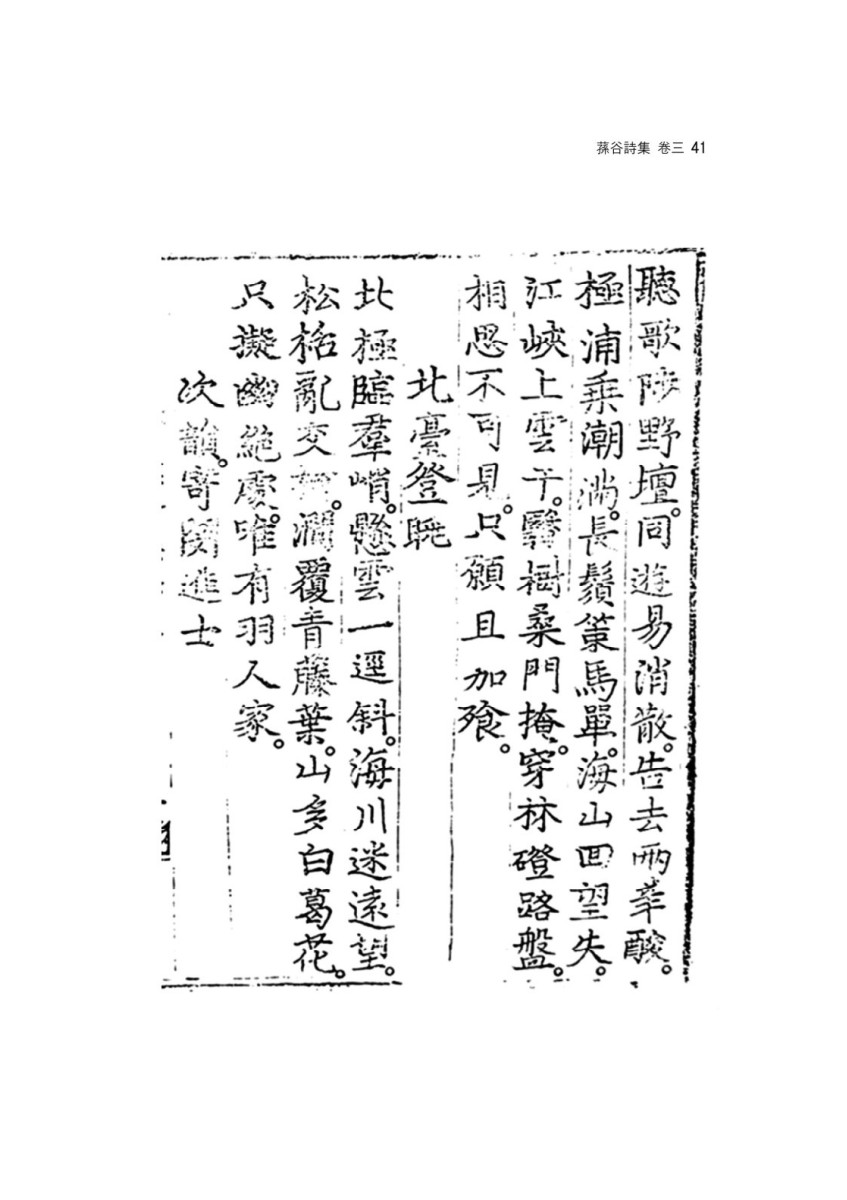 蓀谷詩集 卷三 41
聽歌陟野壇。同遊易消散。告去兩辛酸。
極浦乘潮滿。長鬚策馬單。海山回望失。
江峽上雲干。翳樹桑門掩。穿林磴路盤。
相思不可見。只願且加飱。
北臺登眺
北極臨羣峭。懸雲一逕斜。海川迷遠望。
松栝亂交。澗覆青藤葉。山多白葛花。
只擬幽絶處。唯有羽人家。
次韻。寄進士